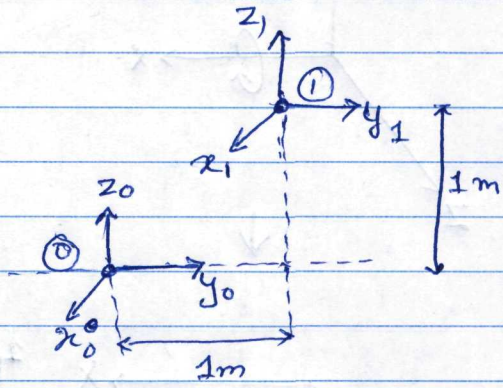 z₁
①
y₁
x₁
1m
z₀
⓪
y₀
x₀
1m